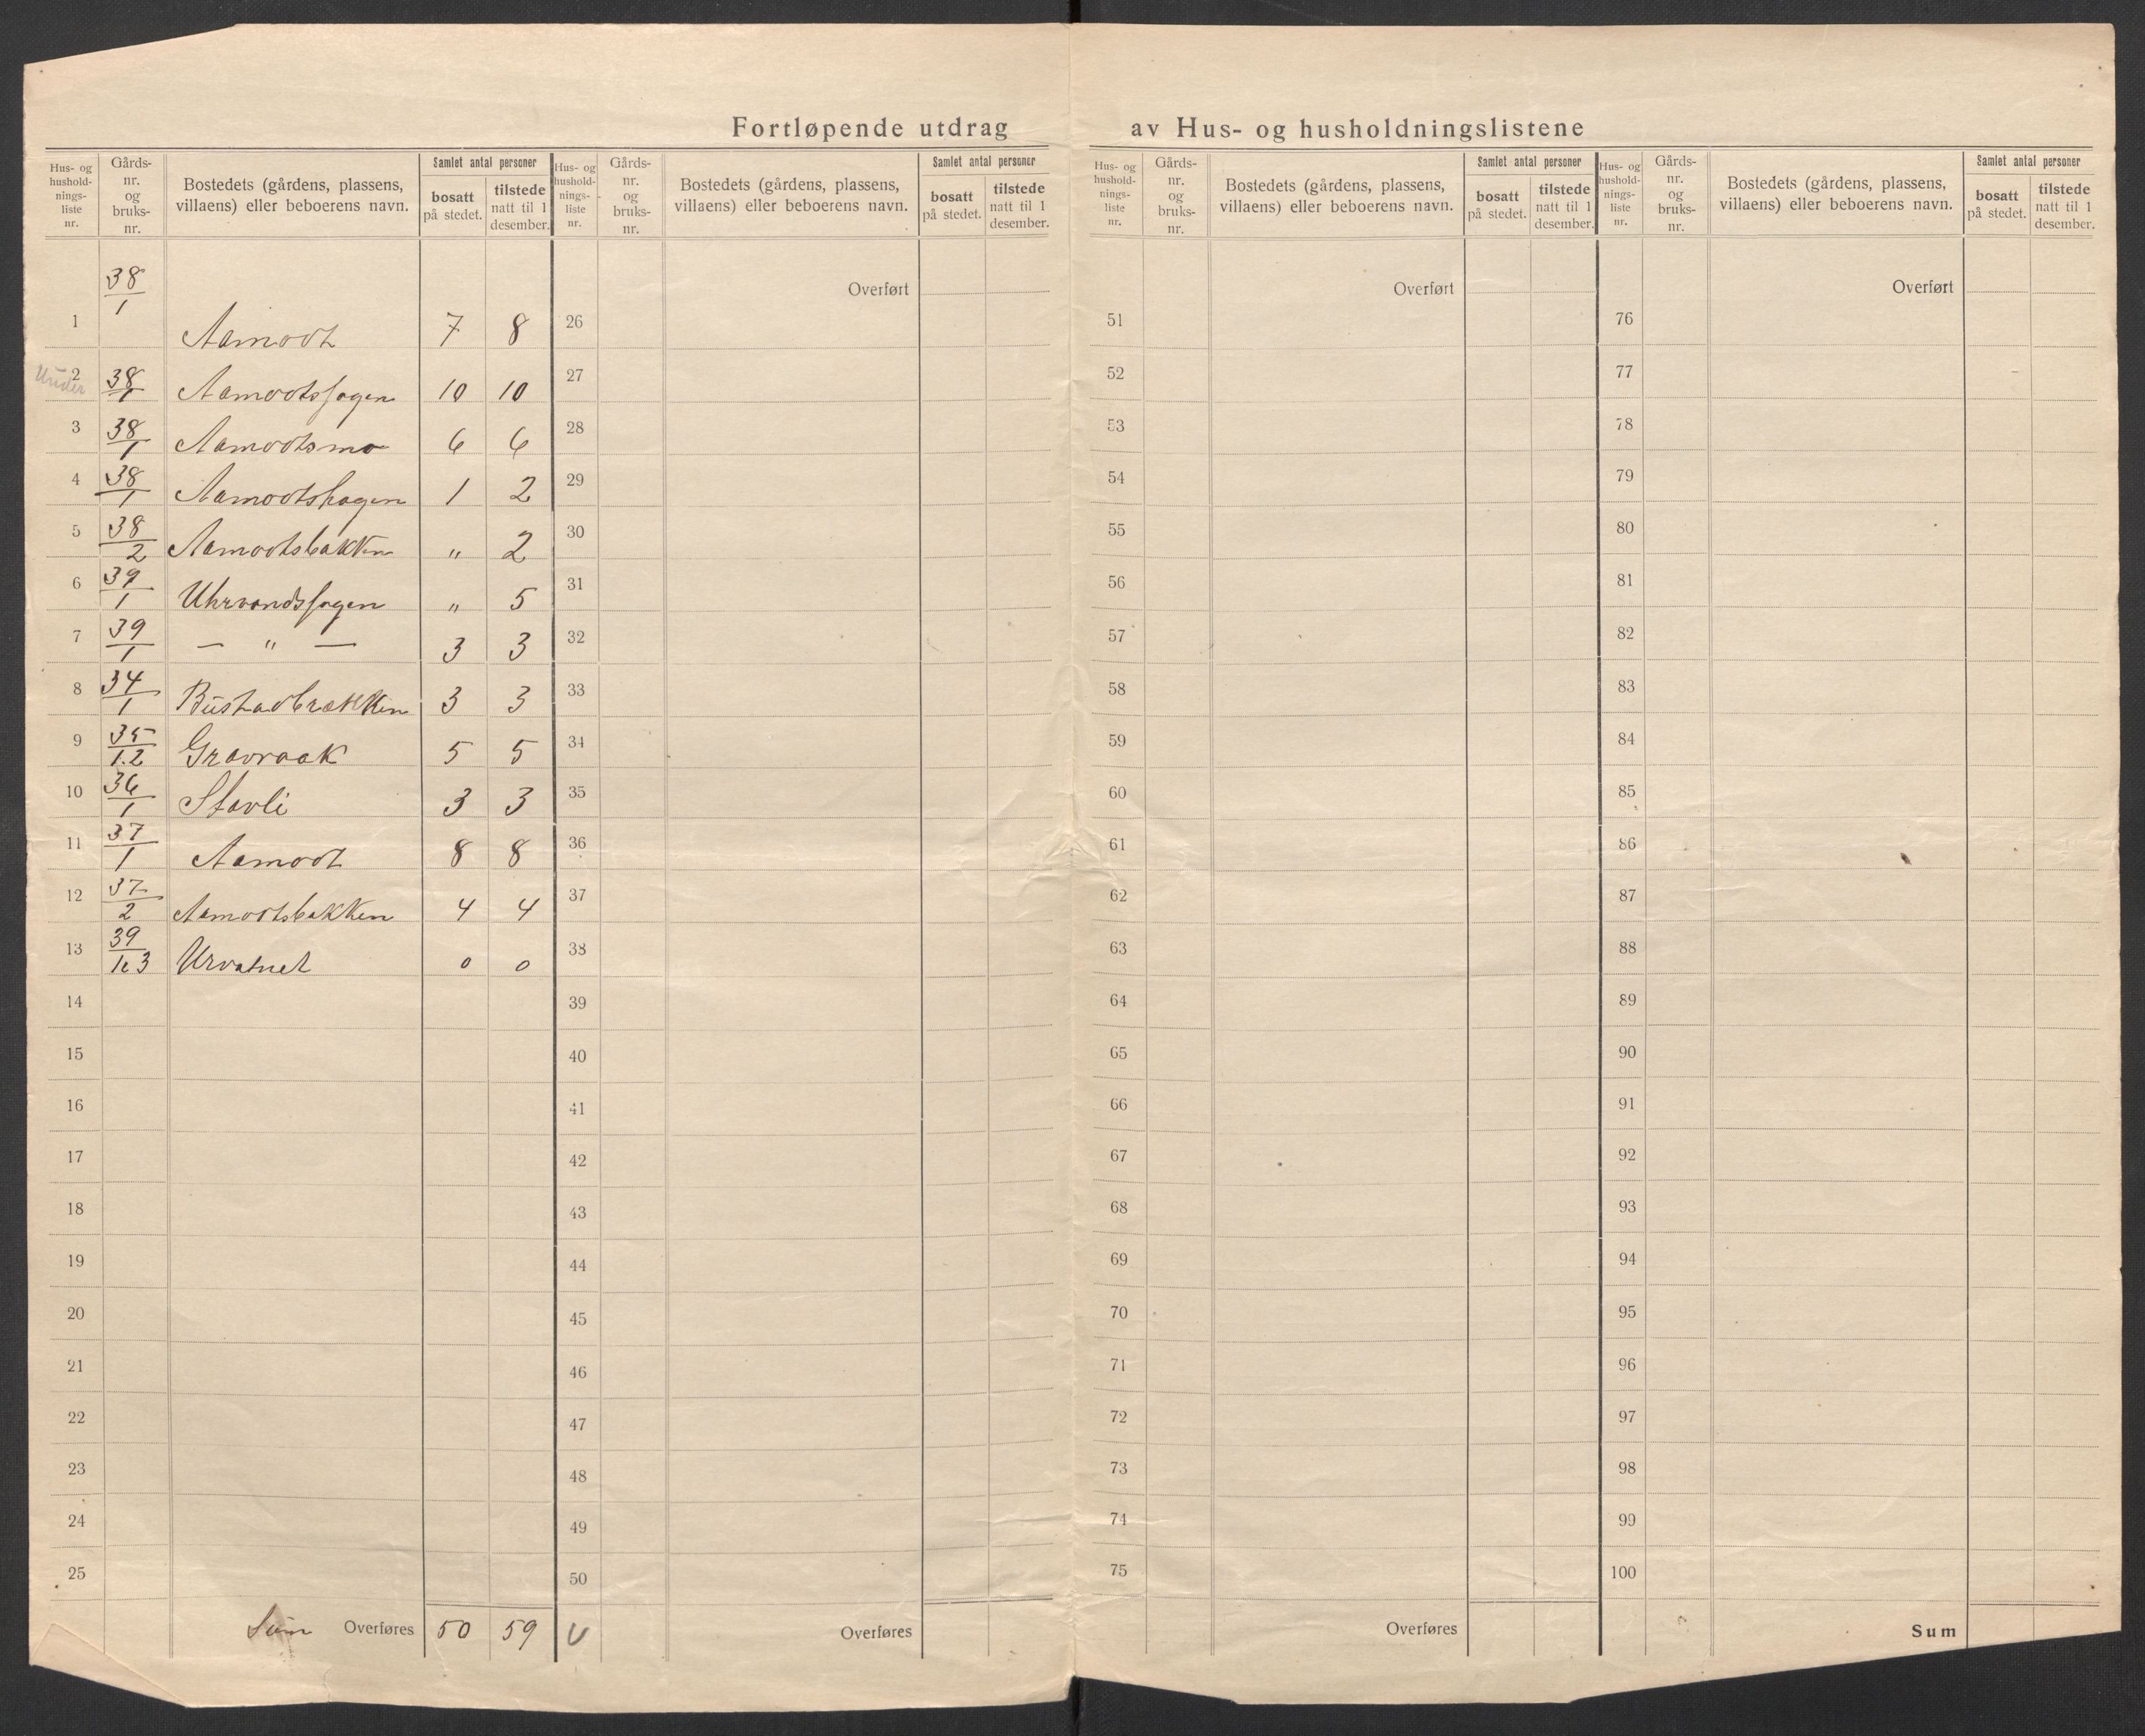 Fortløpende utdrag av Hus- og husholdningslistene
Hus- og hushold-nings-liste nr. Gårds-nr. og bruks-nr. Bostedets (gårdens, plassens, villaens) eller beboerens navn. Samlet antal personer bosatt på stedet. tilstede natt til 1 desember.
Hus- og hushold-nings-liste nr. Gårds-nr. og bruks-nr. Bostedets (gårdens, plassens, villaens) eller beboerens navn. Samlet antal personer bosatt på stedet. tilstede natt til 1 desember.
Hus- og hushold-nings-liste nr. Gårds-nr. og bruks-nr. Bostedets (gårdens, plassens, villaens) eller beboerens navn. Samlet antal personer bosatt på stedet. tilstede natt til 1 desember.
Hus- og hushold-nings-liste nr. Gårds-nr. og bruks-nr. Bostedets (gårdens, plassens, villaens) eller beboerens navn. Samlet antal personer bosatt på stedet. tilstede natt til 1 desember.
Overført Overført Overført
1 38/1 Aamodt 7 8 26 51 76
Under 2 38/1 Aamodtssagen 10 10 27 52 77
3 38/1 Aamodtsmo 6 6 28 53 78
4 38/1 Aamodtshagen 1 2 29 54 79
5 38/2 Aamodtsbakken " 2 30 55 80
6 39/1 Uhrvandssagen " 5 31 56 81
7 39/1 — " — 3 3 32 57 82
8 34/1 Bustadbrækken 3 3 33 58 83
9 35/1.2 Gravraak 5 5 34 59 84
10 36/1 Stavli 3 3 35 60 85
11 37/1 Aamodt 8 8 36 61 86
12 37/2 Aamodtsbakken 4 4 37 62 87
13 39/1&3 Urvatnet 0 0 38 63 88
14 39 64 89
15 40 65 90
16 41 66 91
17 42 67 92
18 43 68 93
19 44 69 94
20 45 70 95
21 46 71 96
22 47 72 97
23 48 73 98
24 49 74 99
25 50 75 100
Sum Overføres 50 59 Overføres Overføres Sum